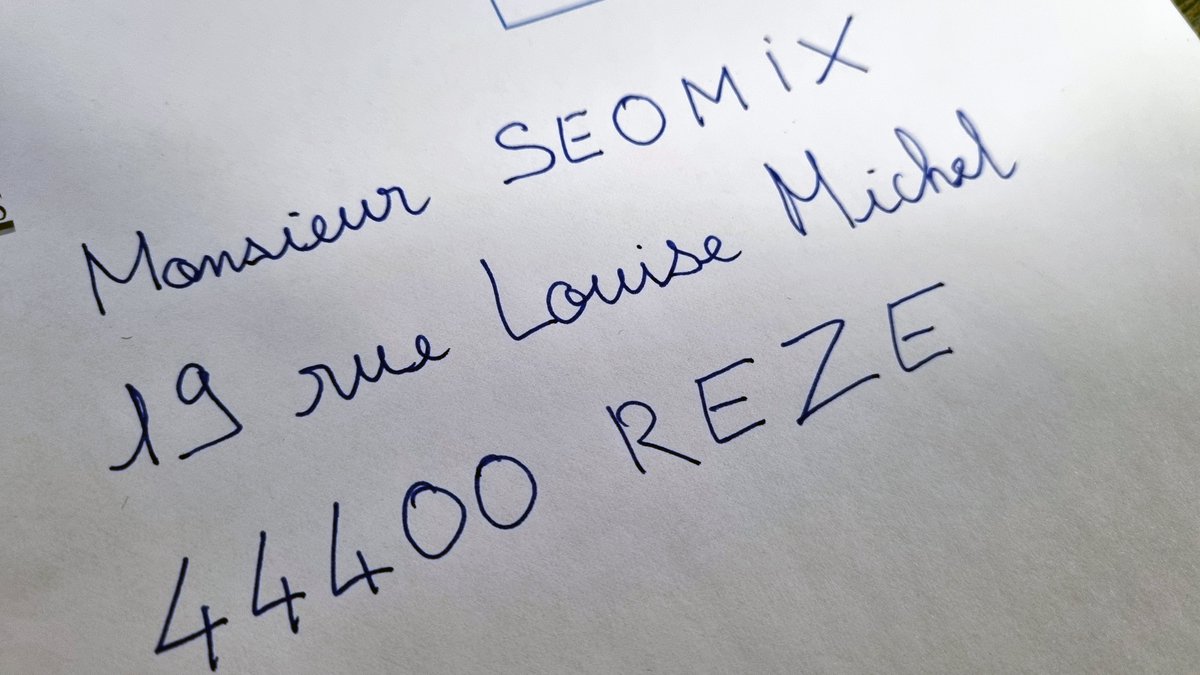 Monsieur SEOMiX
19 rue Louise Michel
44400 REZE